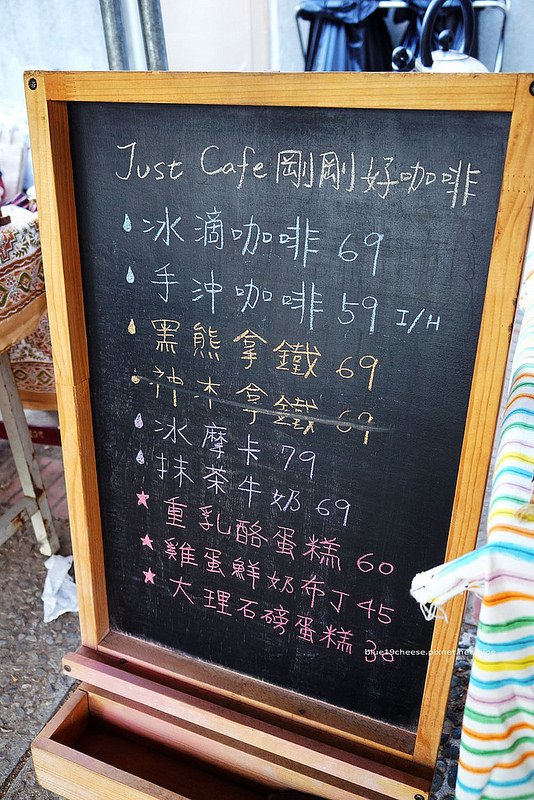 Just Cafe 剛剛好咖啡
冰滴咖啡 69
手沖咖啡 59 I/H
黑熊拿鐵 69
神木拿鐵 69
冰摩卡 79
抹茶牛奶 69
重乳酪蛋糕 60
雞蛋鮮奶布丁 45
大理石磅蛋糕
blue19cheese.pixnet.net/blog